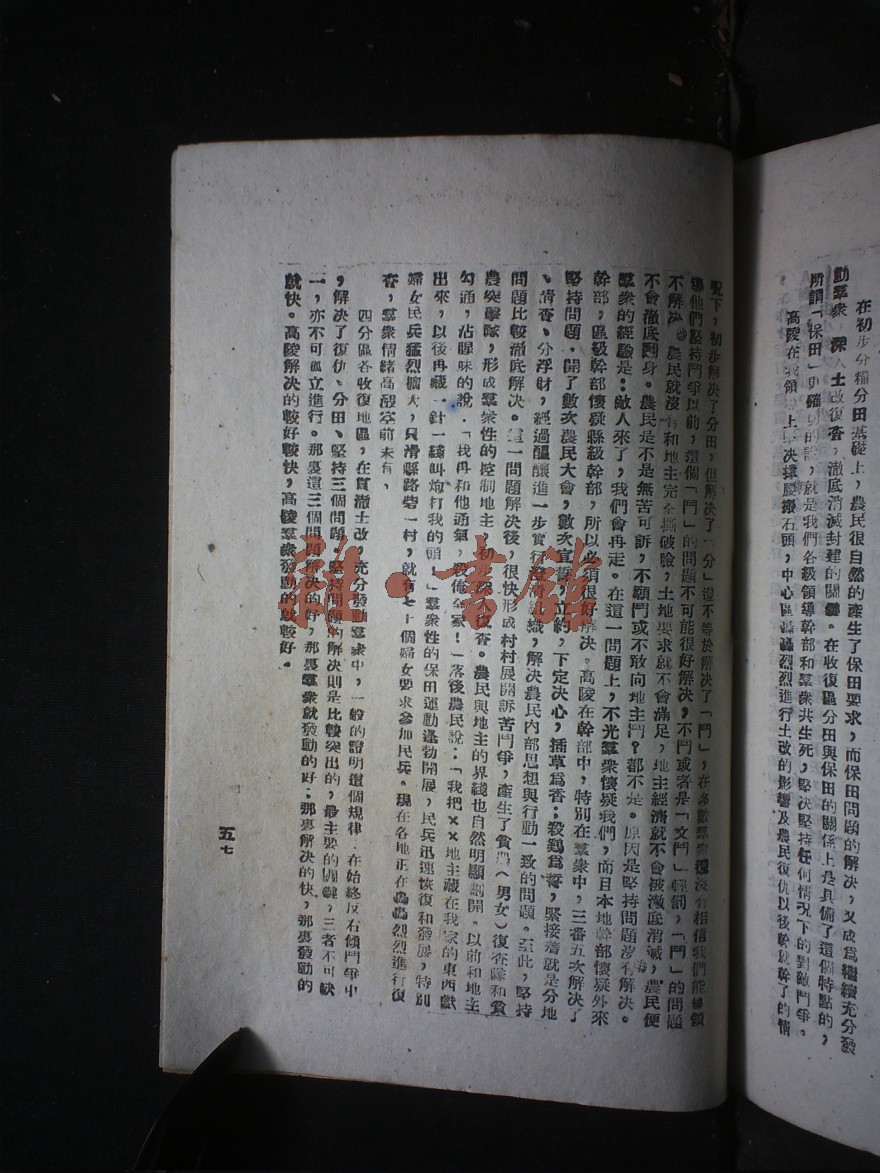 在初步分糧分田基礎上，農民很自然的產生了保田要求，而保田問題的解決，又成爲繼續充分發
動羣衆 深入土改復查，澈底消滅封建的關鍵。在收復區分田與保田的關係上是具備了這個特點的，
所謂「保田」更確切的說，就是我們各級領導幹部和羣衆共生死，堅決堅持任何情况下的對敵鬥爭。
高陵在我領 上堅決撑腰搬石頭，中心區轟轟烈烈進行土改的影響及農民復仇以後幹就幹了的情
况下，初步解決了分田，但解決了「分」還不等於解決了「鬥」，在多數羣衆還沒有相信我們能够領
導他們堅持鬥爭以前，這個「鬥」的問題不可能很好解決，不鬥或者是「文鬥」輕罰，「鬥」的問題
不解決 農民就沒有和地主完全撕破臉，土地要求就不會滿足，地主經濟就不會被澈底消滅，農民便
不會澈底翻身。農民是不是無苦可訴，不願鬥或不敢向地主鬥？都不是。原因是堅持問題沒有解決。
羣衆的經驗是：敵人來了，我們會再走。在這一問題上，不光羣衆懷疑我們，而且本地幹部懷疑外來
幹部，區級幹部懷疑縣級幹部，所以必須很好解決。高陵在幹部中，特別在羣衆中，三番五次解決了
堅持問題。開了數次農民大會，數次宣誓，立約，下定決心，插草爲香；殺鷄爲誓，緊接着就是分地
、淸查、分浮財，經過醞釀進一步實行 組織，解決農民內部思想與行動一致的問題。至此，堅持
問題比較澈底解決。這一問題解決後，很快形成村村展開訴苦鬥爭，產生了貧農（男女）復查隊和貧
農突擊隊，形成羣衆性的控制地主，初步深入復查。農民與地主的界綫也自然明顯劃開。以前和地主
勾通，沾腥味的說：「我再和他通氣，殺俺全家！」落後農民說：「我把××地主藏在我家的東西獻
出來，以後再藏一針一綫叫炮打我的頭！」羣衆性的保田運動蓬勃開展，民兵迅速恢復和發展，特別
婦女民兵猛烈擴大，只滑縣路砦一村，就有七十個婦女要求參加民兵。現在各地正在轟轟烈烈進行復
查，羣衆情緒高漲空前未有。
四分區各收復地區，在貫澈土改 充分發動羣衆中，一般的證明這個規律：在始終反右傾鬥爭中
，解決了復仇、分田、堅持三個問題，堅持問題的解決則是比較突出的，最主要的關鍵，三者不可缺
一，亦不可孤立進行。那裏這三個問題解決的好，那裏羣衆就發動的好；那裏解決的快，那裏發動的
就快。高陵解決的較好較快，高陵羣衆發動的就較好。
五七
新 書館